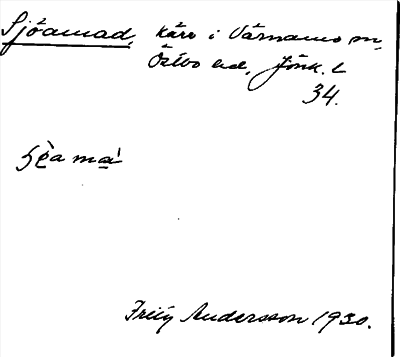 Sjöamad, kärr i Värnamo sn,
Östbo hd, Jönk. l.
34.
Fritiof Andersson 1930.